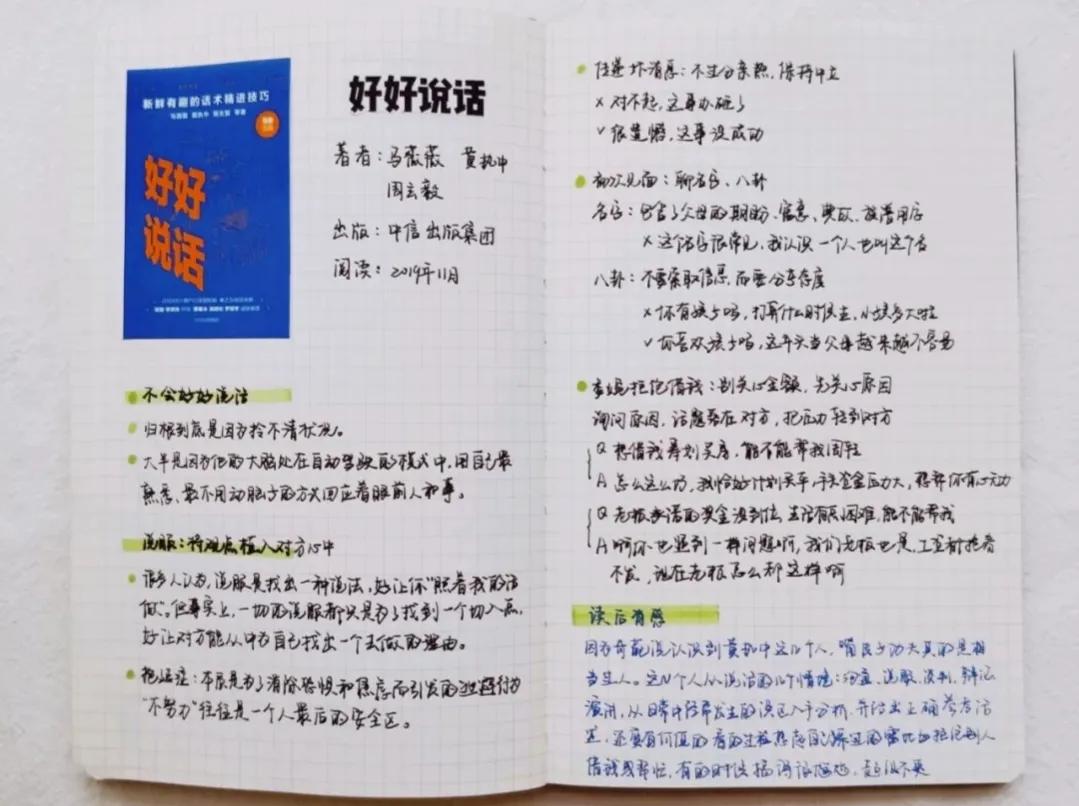 新鲜有趣的话术精进技巧
好好
说话
好好说话
著者：马薇薇 黄执中
周玄毅
出版：中信出版集团
阅读：2019年11月
不会好好说话
归根到底是因为拎不清状况。
大半是因为他的大脑处在自动驾驶的模式中，用自己最
熟悉、最不用动脑子的方式回应着眼前人和事。
说服：将观点植入对方心中
很多人认为，说服是找出一种说法，好让你“照着我的话
做”。但事实上，一切的说服都只是为了找到一个切入点，
好让对方能从中为自己找出一个去做的理由。
拖延症：本质是为了消除恐惧和焦虑而引发的逃避行为
“不努力”往往是一个人最后的安全区。
传递坏消息：不过分亲热，保持中立
x 对不起，这事办砸了
v 很遗憾，这事没成功
初次见面：聊名字、八卦
名字：包含了父母的期盼、寓意、典故、放谱用字
x 这个名字很常见，我认识一个人也叫这个名
八卦：不要索取信息，而要分享态度
x 你有孩子吗，打算什么时候生，小孩多大啦
v 你喜欢孩子吗，这年头当父母越来越不容易
拒绝借钱：别关心金额，先关心原因
询问原因，话题落在对方，把压力转到对方
Q 想借钱筹划买房，能不能帮我周转
A 怎么这么巧，我恰好计划买车，手头资金压力大，想帮你有心无力
Q 老板承诺的奖金没到位，生活有点困难，能不能帮我
A 啊你也遇到一样问题啊，我们老板也是，工资都拖着
不发，现在老板怎么都这样啊
读后有感
因为奇葩说认识到黄执中这几个人，嘴皮子功夫真的是相
当生人。这几个人从说话的几个情境：沟通、说服、谈判、辩论
演讲，从日常中经常发生的误区入手分析，并给出正确参考话
术，还蛮有价值的。看的过程想起自己
借钱或帮忙，有的时候搞得很尴尬，